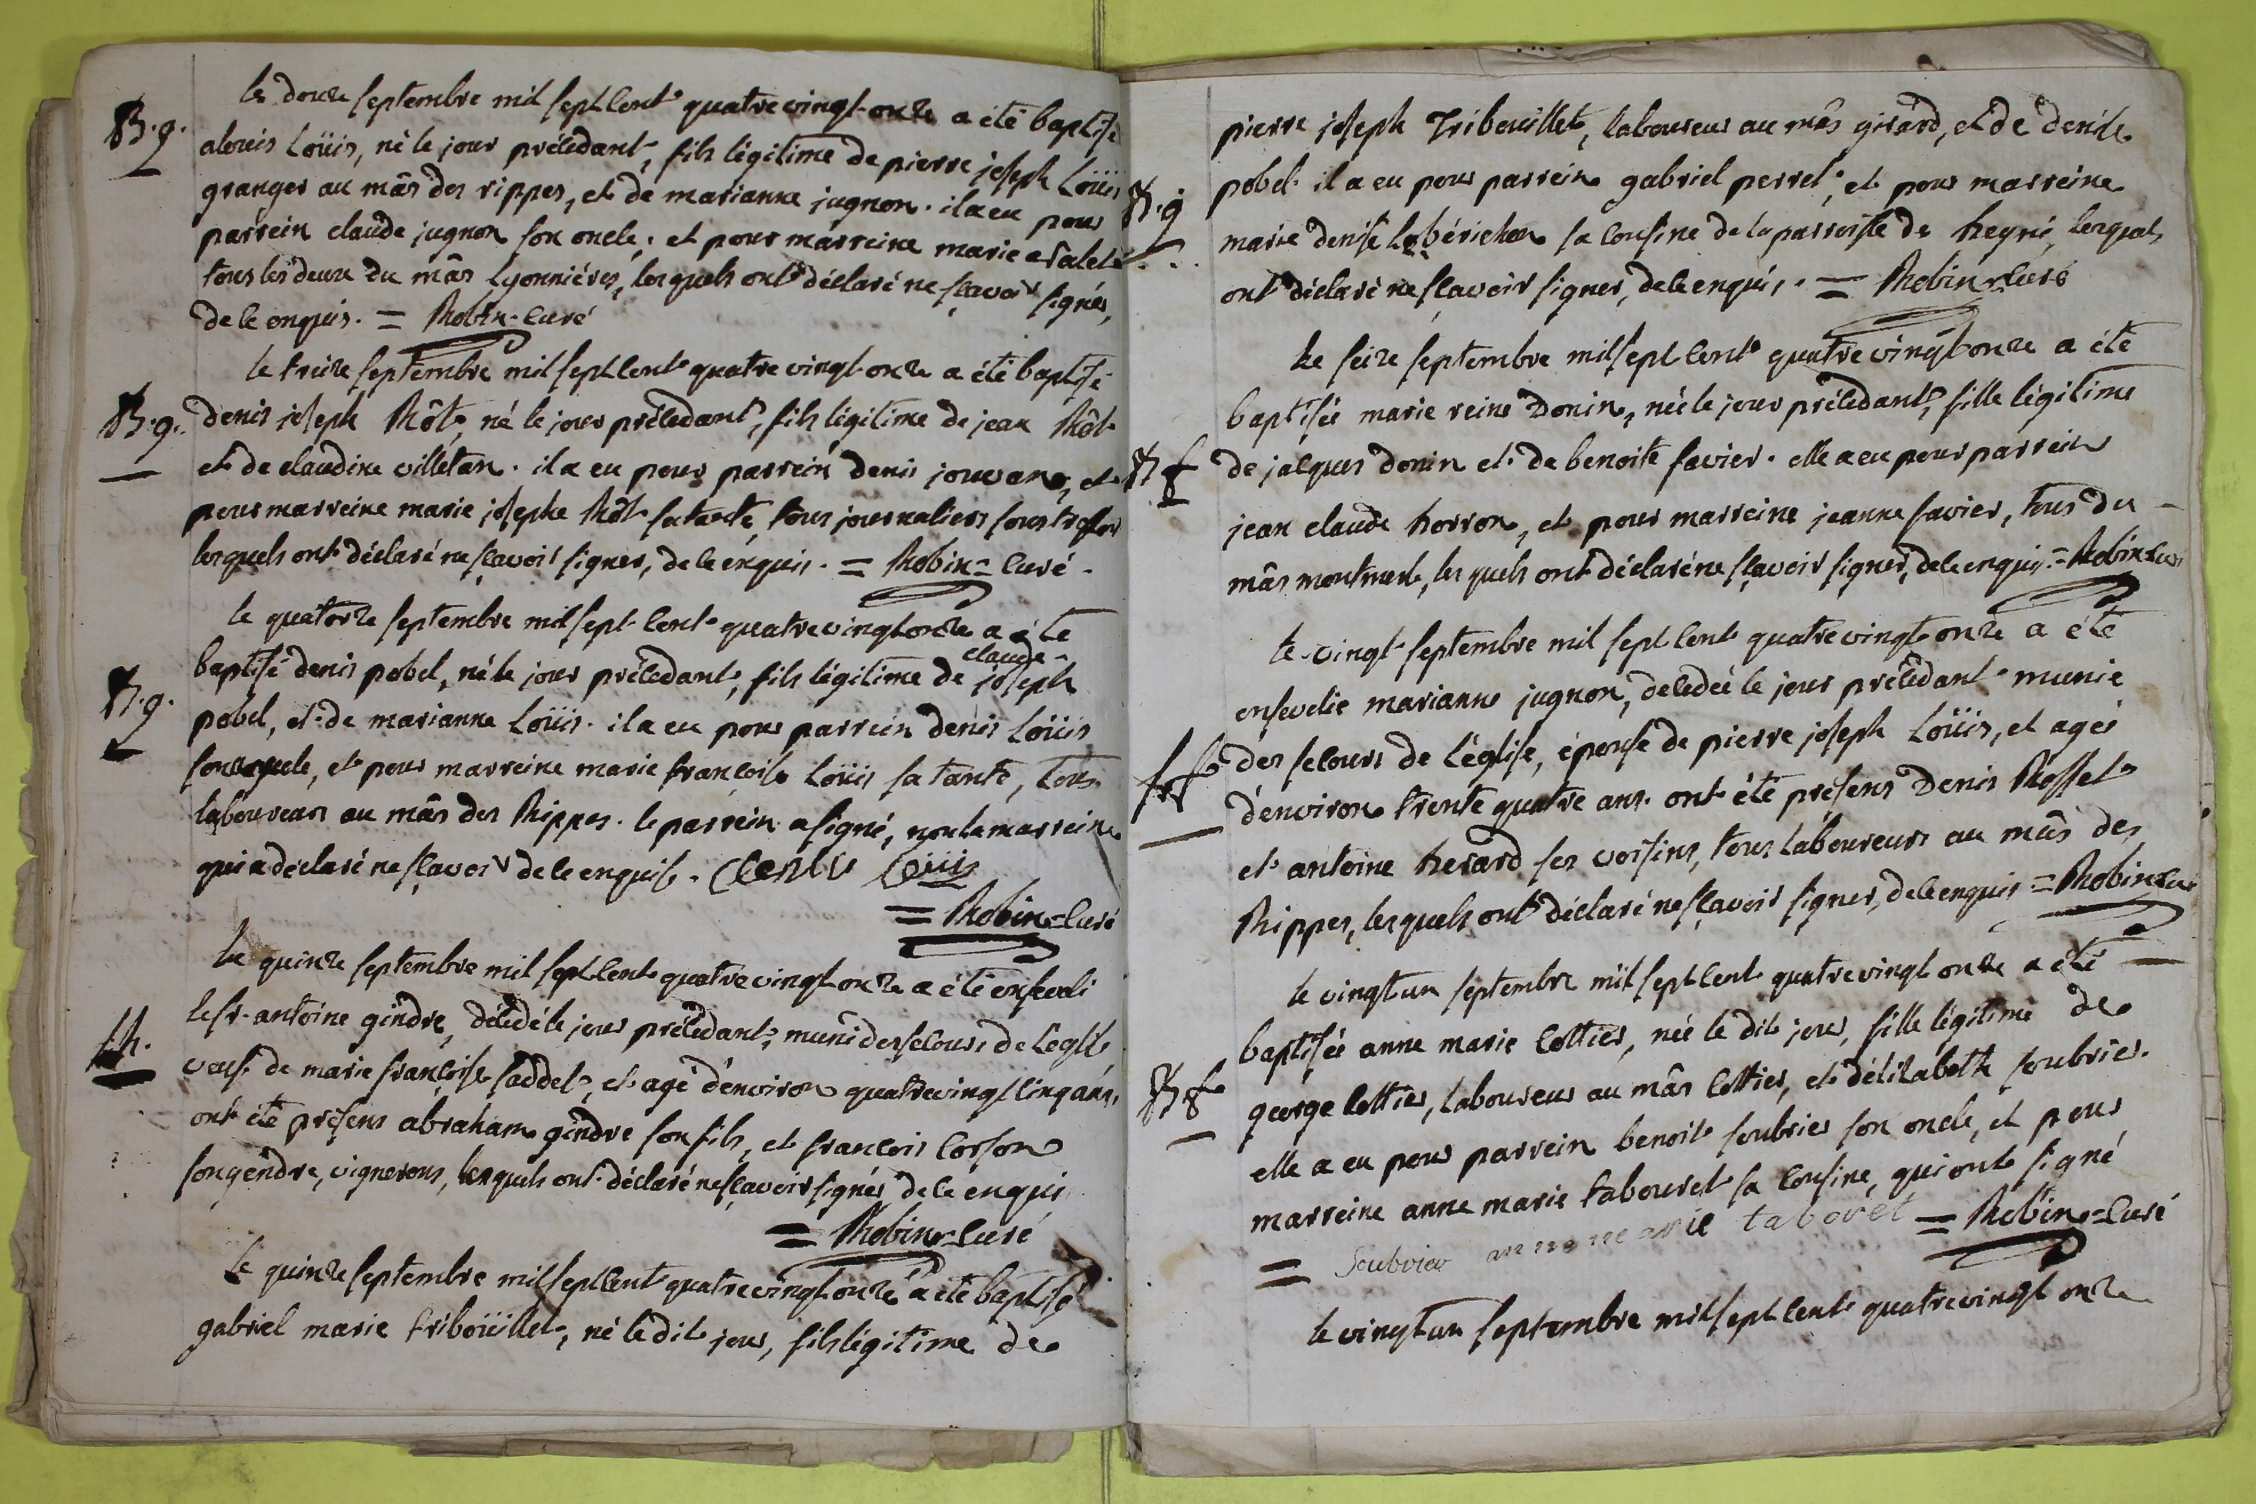 le douze septembre mil sept cent quatre vingt onze a été baptisé
B.g. alouis Loüis, né le jour précedant, fils légitime de pierre joseph Loüis
granger au mâs des rippes, et de marianne jugnon. il a eu pour
parrein claude jugnon son oncle, et pour marreine marie
tous les deux du mâs Lyonnières, lesquels ont déclaré ne sçavoir signer,
de ce enquis. = Robin-curé
le treize septembre mil sept cent quatre vingt onze a été baptisé
B.g. denis joseph Rôt, né le jour précedant, fils légitime de jean Rôt
et de claudine villetan. il a eu pour parrein denis jouvan, et
pour marreine marie josephe Rôt sa tante, tous journaliers
lesquels ont déclaré ne sçavoir signer, de ce enquis. = Robin = curé.
le quatorze septembre mil sept cent quatre vingt onze a été
claude
B.g. baptisé denis pobel, né le jour précedant, fils légitime de joseph
pobel, et de marianne Loüis. il a eu pour parrein denis Loüis
son oncle, et pour marreine marie françoise Loüis sa tante, tous
laboureurs au mâs des Rippes. le parrein a signé, non la marreine
qui a déclaré ne sçavoir de ce enquise. denis Louis
= Robin = curé
le quinze septembre mil sept cent quatre vingt onze a été enseveli
le sr. antoine gindre, décedé le jour précedant, muni des secours de l'église
S.h. veuf de marie françoise faddet, et agé d'environ quatre vingt cinq ans,
ont été présens abraham gindre son fils, et francois corson
son gendre, vignerons, lesquels ont déclaré ne sçavoir signer de ce enquis
= Robin = curé
le quinze septembre mil sept cent quatre vingt onze a été baptisé
gabriel marie triboüillet, né le dit jour, fils légitime de
pierre joseph Tribouillet, laboureur au mâs girard, et de denise
B.g pobel. il a eu pour parrein gabriel perret, et pour marreine
marie denise Labérichon sa cousine de la parroisse de treyné, lesquels
ont déclaré ne sçavoir signer, de ce enquis. = Robin-curé
Le seize septembre mil sept cent quatre vingt onze a été
baptisée marie reine Donin, née le jour précedant, fille légitime
B f de jacques donin et de benoite favier. elle a eu pour parrein
jean claude horron, et pour marreine jeanne favier, tous du
mâs montmerl, lesquels ont déclaré ne sçavoir signer, de ce enquis = Robin curé
le vingt septembre mil sept cent quatre vingt onze a été
ensevelie marianne jugnon, décedeé le jour précédant munie
des secours de l'église, épouse de pierre joseph Loüis, et ageé
d'environ trente quatre ans. ont été présens Denis Rosset
et antoine herard ses voisins, tous laboureurs au mâs des
Rippes, lesquels ont déclaré ne sçavoir signer, de ce enquis = Robin curé
le vingt un septembre mil sept cent quatre vingt onze a été
baptisée anne marie Cottier, née le dit jour, fille légitime de
B f george Cottier, laboureur au mâs Cottier, et d'élizabeth soubrier.
elle a eu pour parrein benoit soubrier son oncle, et pour
marreine anne marie tabouret sa cousine, qui ont signé
= Soubrier anne marie taboret = Robin = curé
le vingt un septembre mil sept cent quatre vingt onze